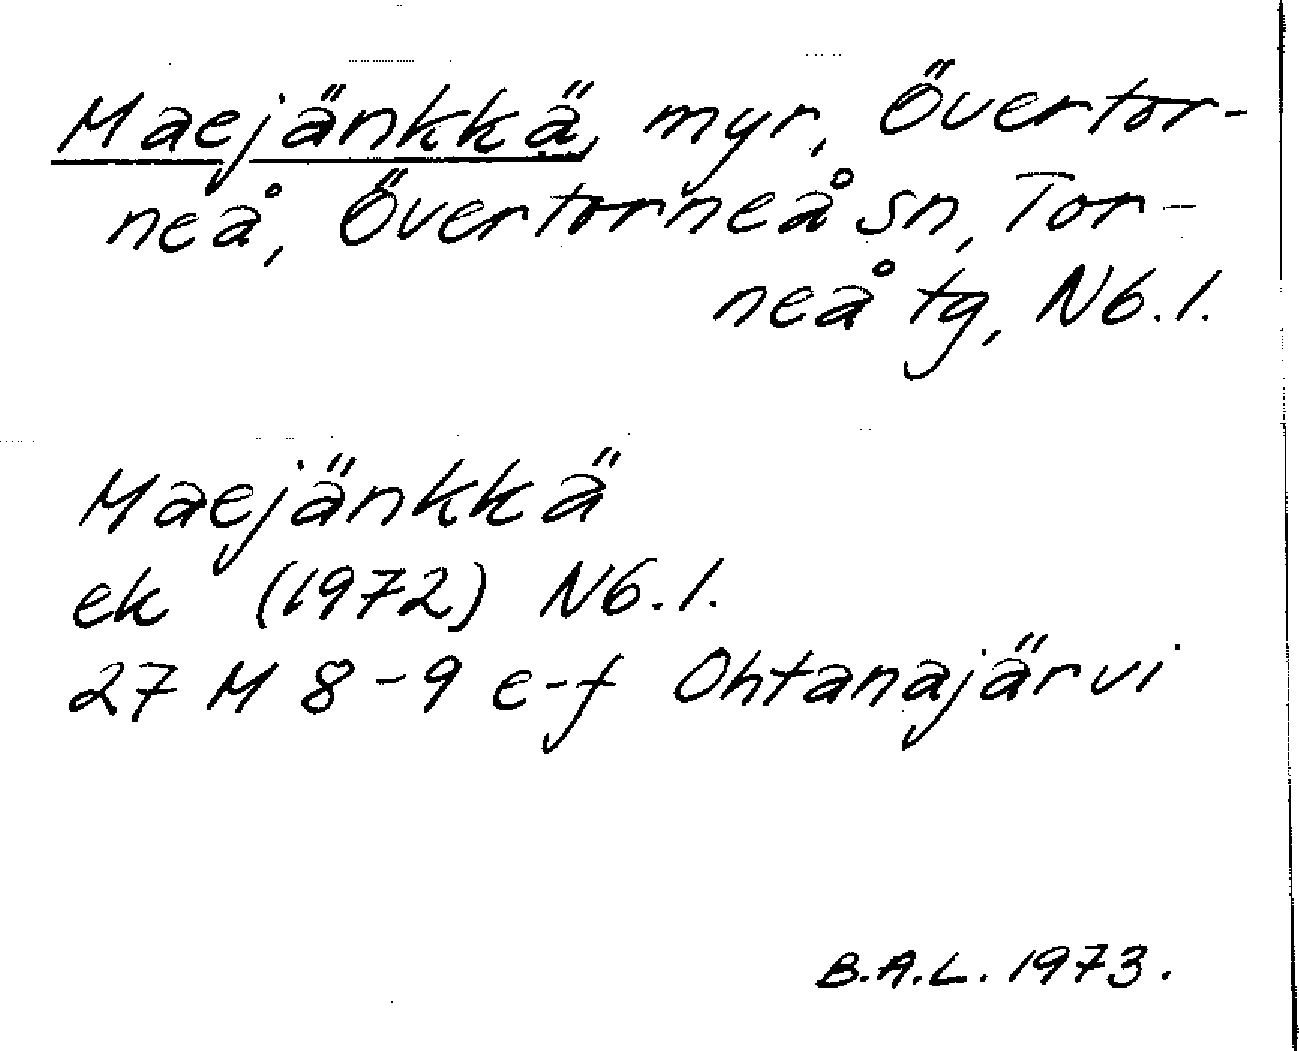 Maejänkkä, myr, Övertor-
neå, Övertorneå sn, Tor-
neå tg, Nb.l.
Maejänkkä
ek (1972) Nb.l.
27 M 8-9 e-f Ohtanajärvi
B.A.L. 1973.